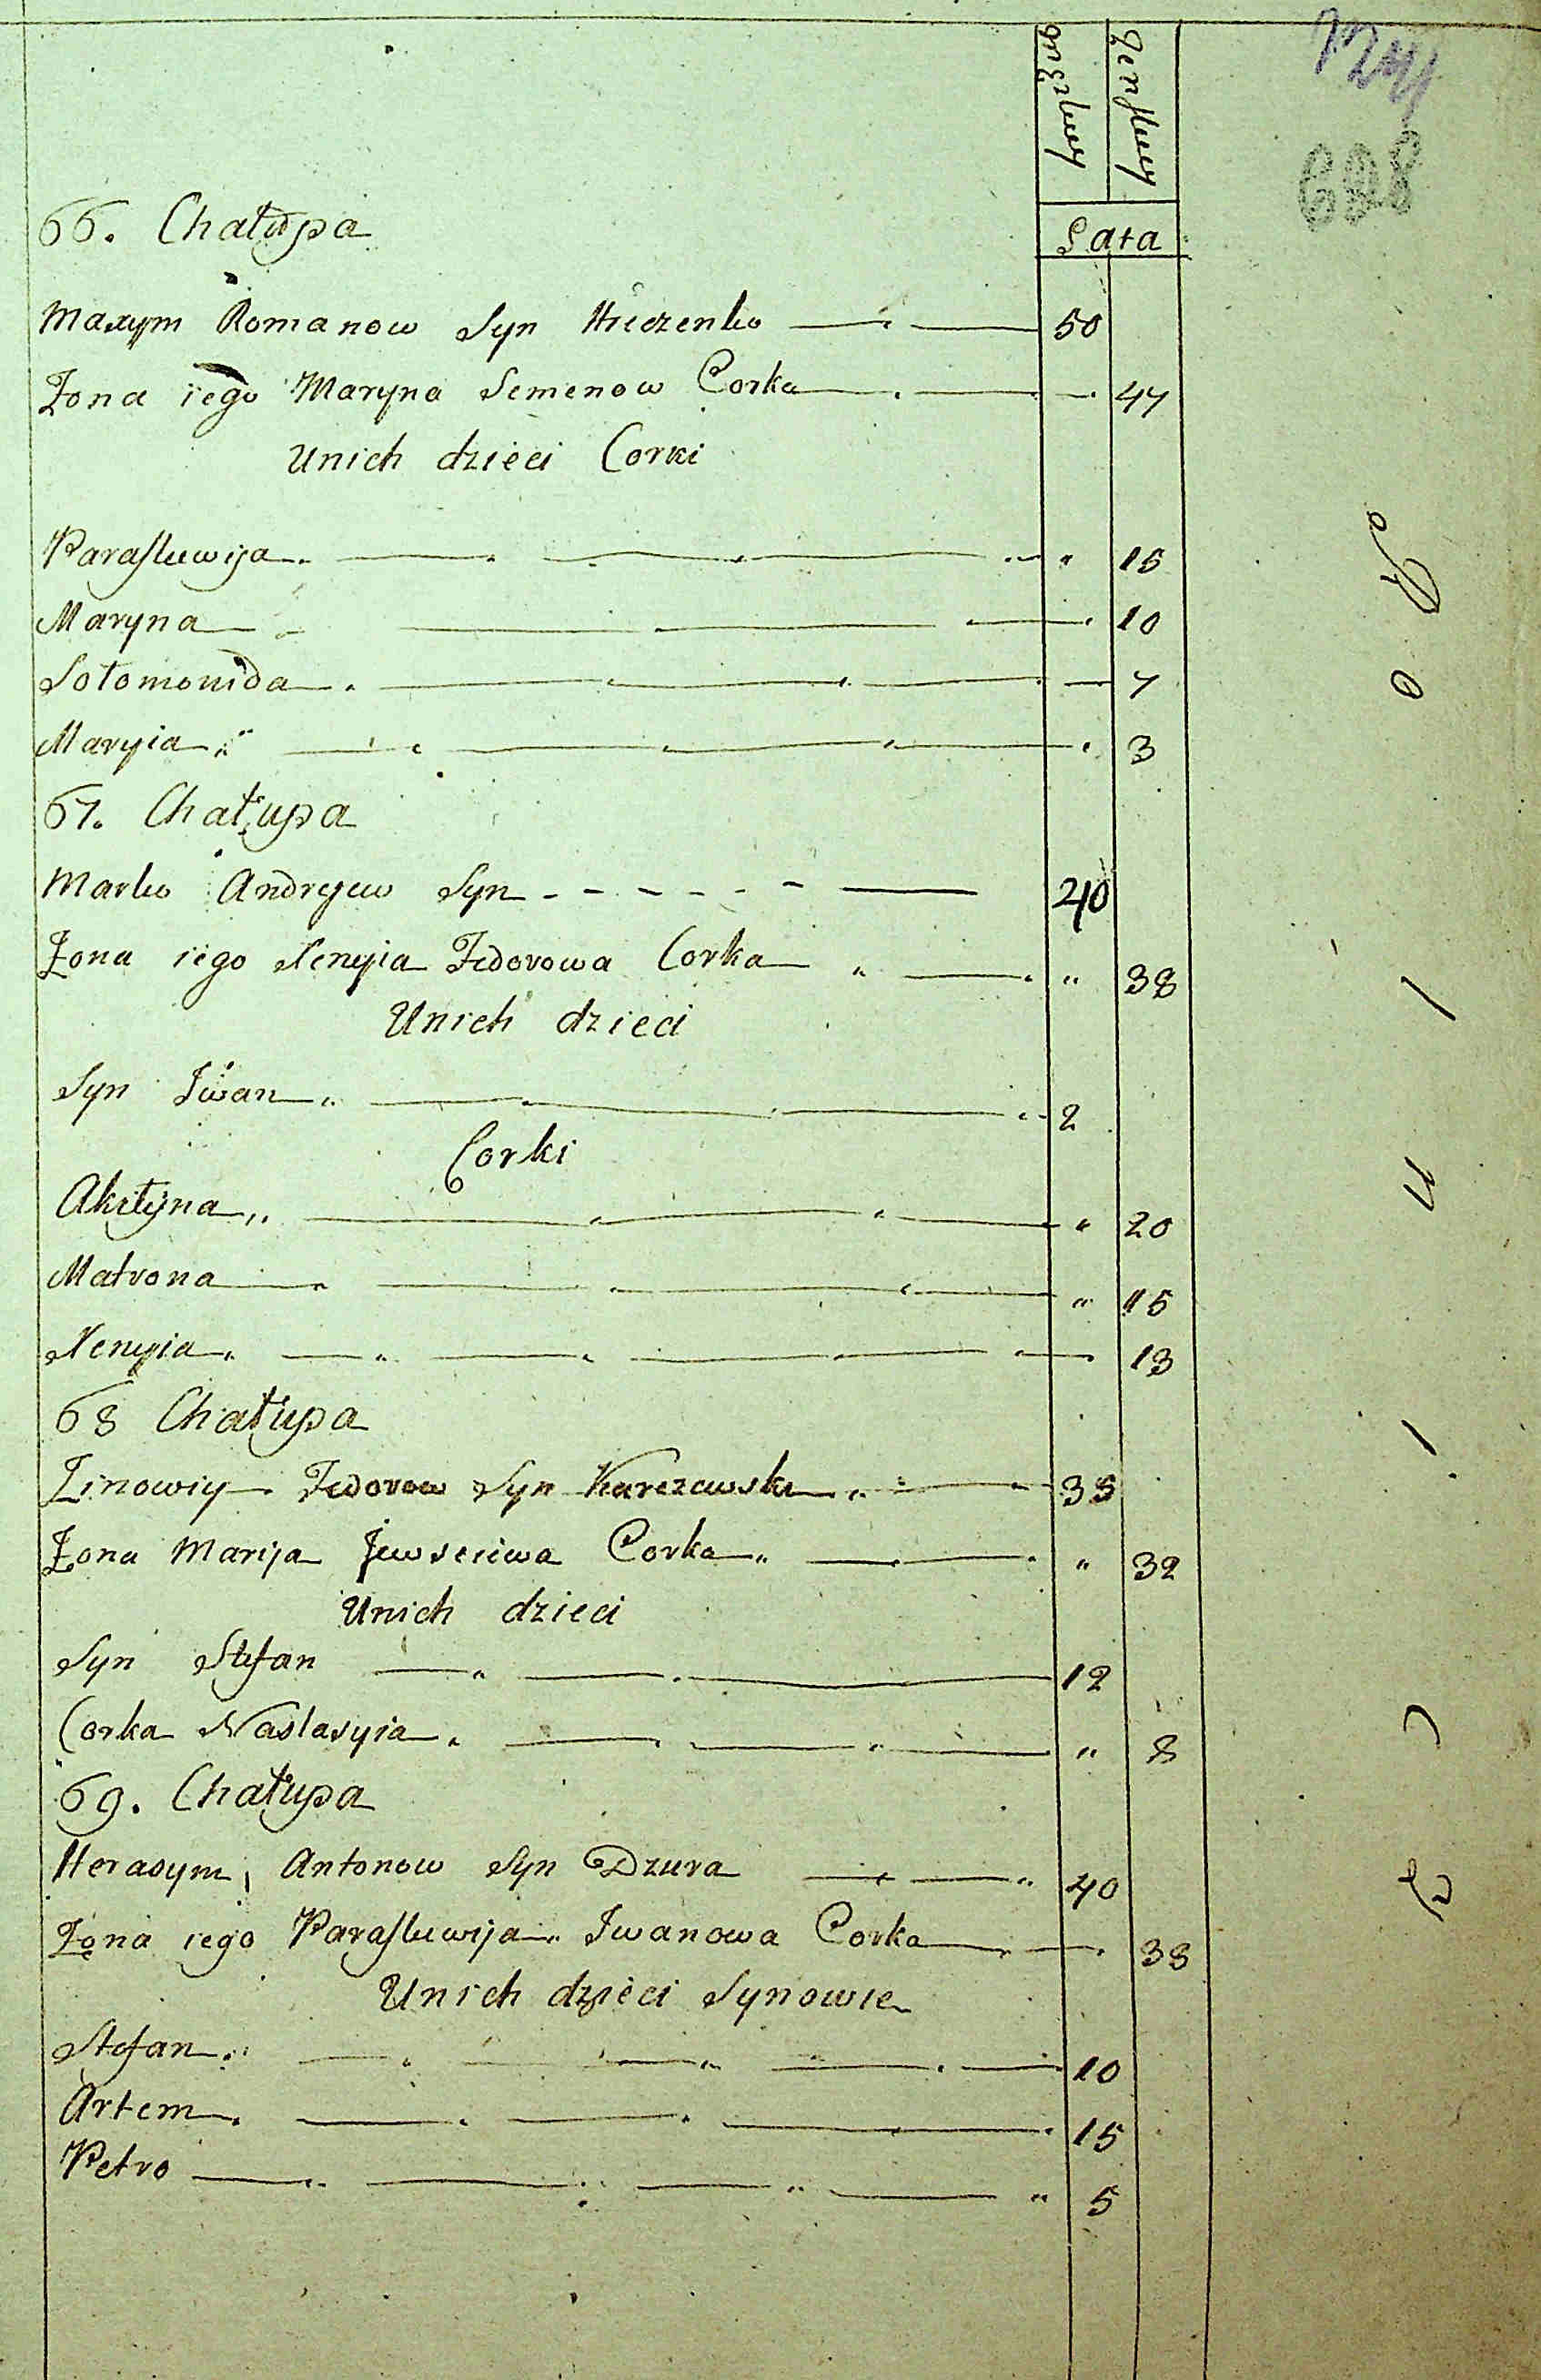 męzkiey żenskiey
Lata
66. Chałupa
Maxym Romanow Syn 50
Żona iego Maryna Semenow Corka 47
Unich dzieci Corki
Paraskewija 15
Maryna 10
Sołomonida 7
Maryia 3
67. Chałupa
Marko Andreyew Syn 40
Żona iego Xenyia Fedorowa Corka 38
Unich dzieci
Syn Iwan 2
Corki
Akilyna 20
Matrona 15
Xenyia 13
68 Chałupa
Zinowiy Fedorow Syn Karczewski 35
Żona Marija Jewseiewa Corka 32
Unich dzieci
Syn Stefan 12
Corka Nastasyia 8
69. Chałupa
Herasym Antonow Syn Dzura 40
Żona iego Paraskewija Iwanowa Corka 38
Unich dzieci Synowie
Stefan 10
Artem 15
Petro 5